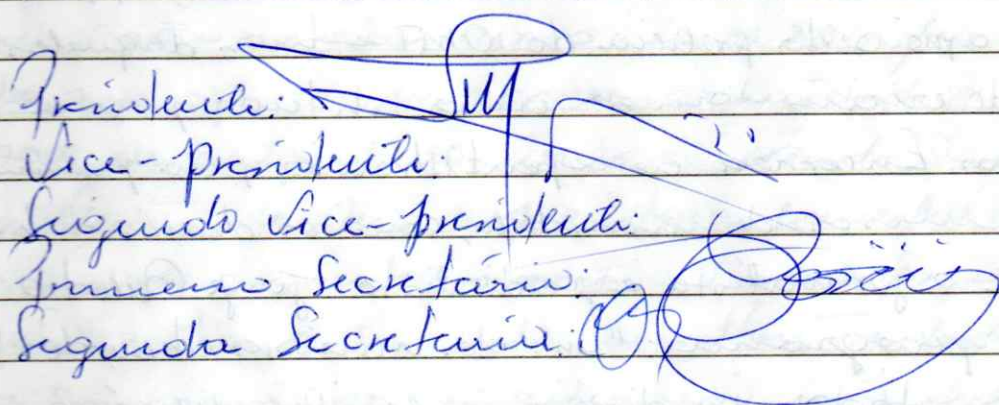 Presidente:
Vice-presidente:
Segundo Vice-presidente:
Primeiro Secretário:
Segunda Secretária: